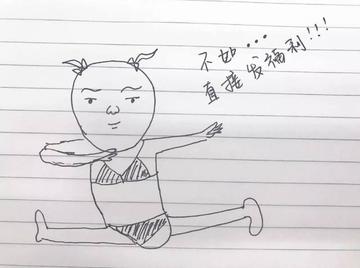 不如...
直接发福利!!!